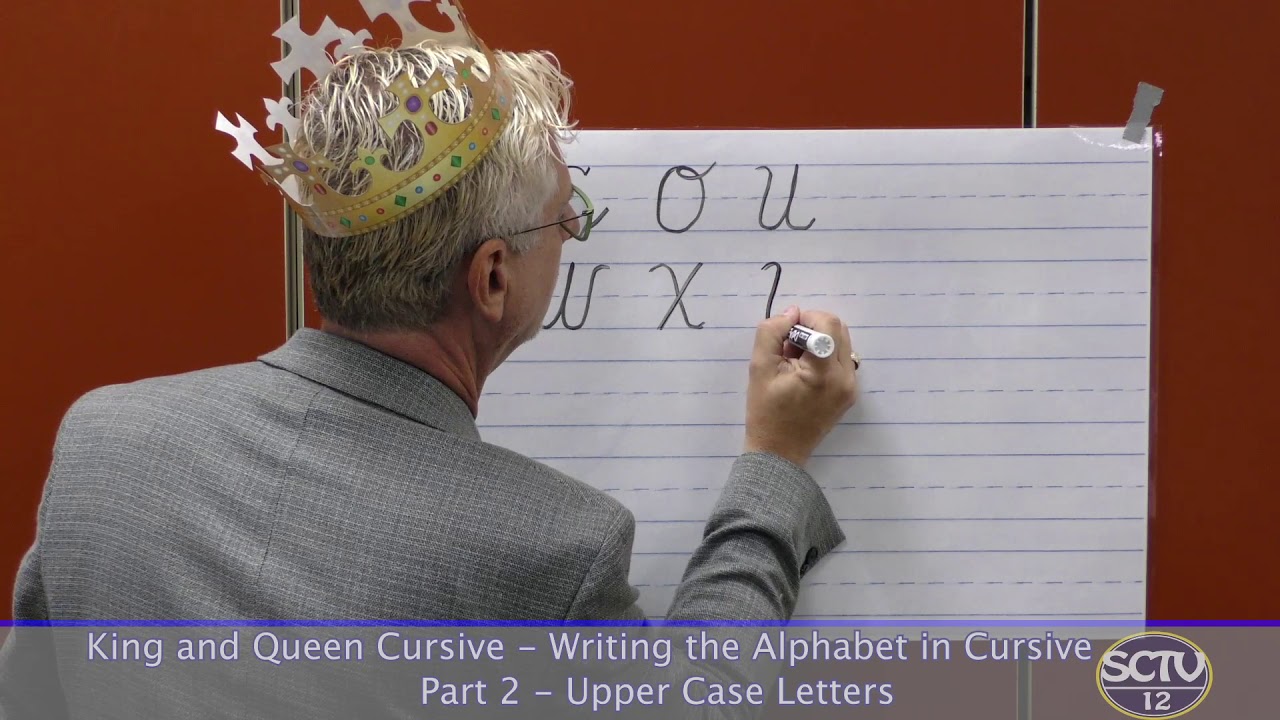 O U
W X
King and Queen Cursive - Writing the Alphabet in Cursive
Part 2 - Upper Case Letters
SCTV
12